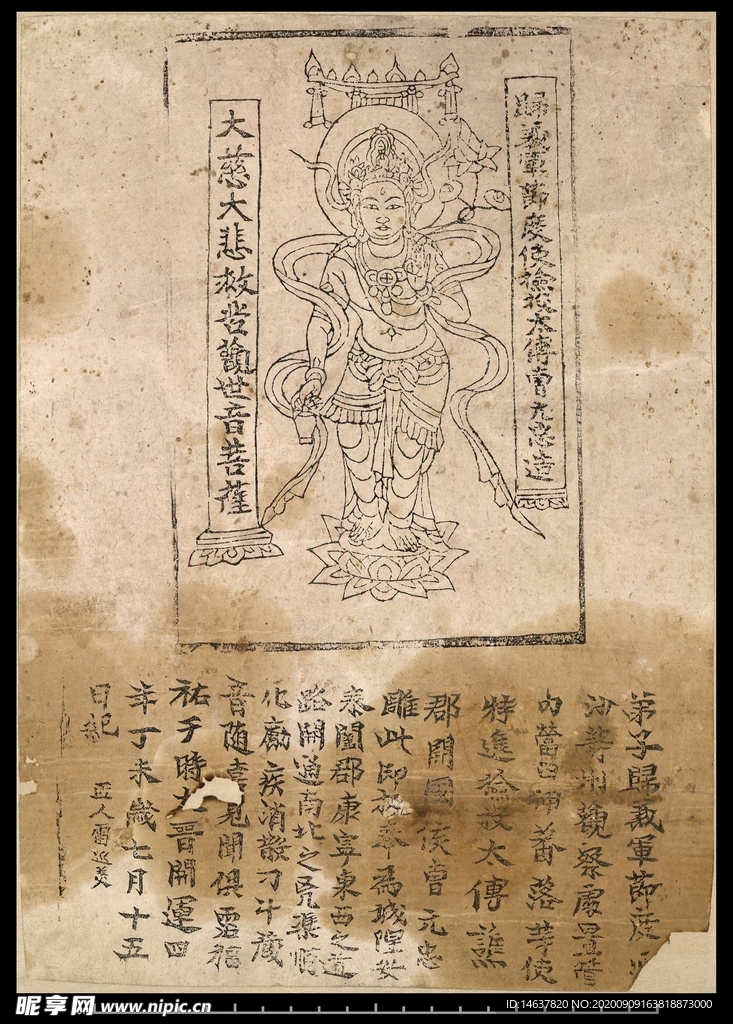 歸義軍節度使撿挍太傅曹元忠造
大慈大悲救苦觀世音菩薩
弟子歸義軍節度瓜
沙等州觀察處置管
內營田押蕃落等使
特進撿挍太傅譙
郡開國侯曹元忠
雕此印板奉為城隍安
泰闔郡康寧東西之道
路開通南北之兇渠順
化勵疾消散刁斗藏
音隨喜見聞俱霑福
祐于時大晉開運四
年丁未歲七月十五
日紀 匠人雷延美
昵享网 www.nipic.cn
ID:14637820 NO:20200909163818873000